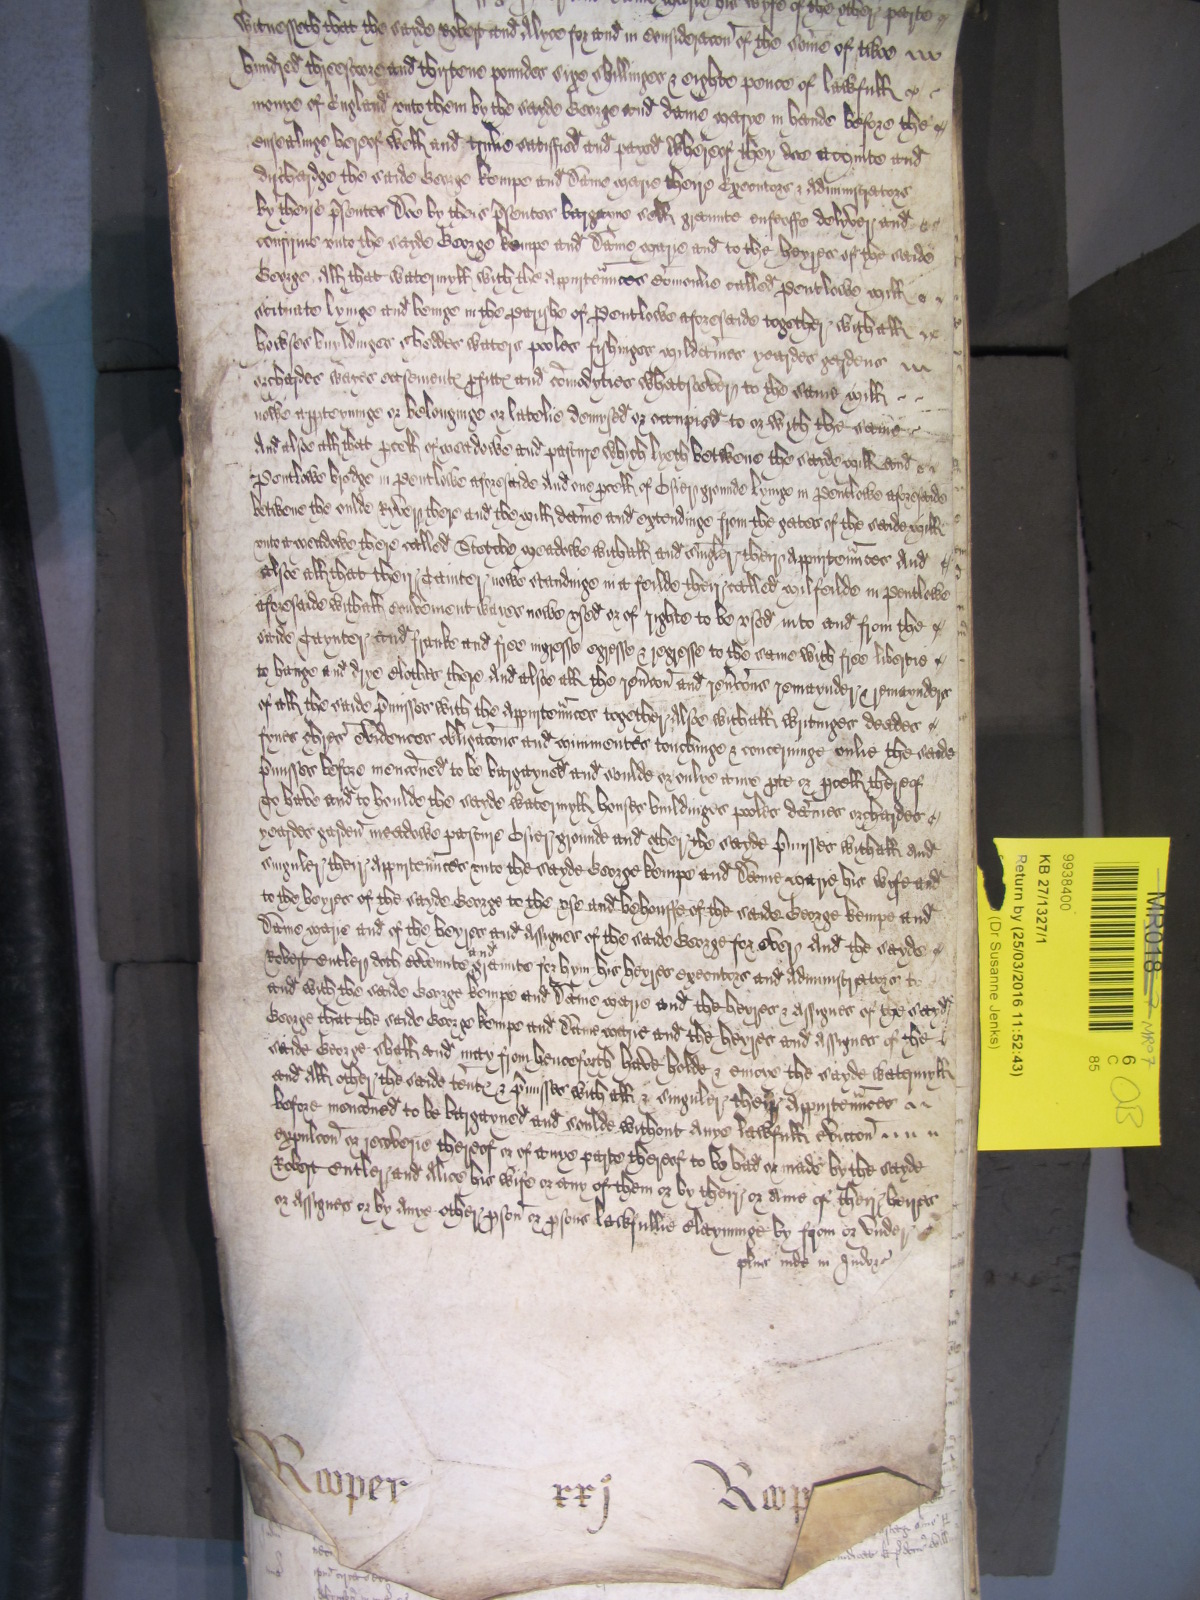 wyfe of the other parte
Witnesseth that the sayde Robert and Alyce for and in consideracon of the some of twoe
hundred threescore and thirtene poundes sixe shillinges & eighte pence of lawfull
monye of England vnto them by the sayde George and Dame Marye in hande before the
ensealinge hereof well and trulie satisfied and payed Whereof they doe acquite and
dischardge the saide George Kempe and Dame Marie theire Executors & Administrators
by theise psentes Doe by theis psentes bargayne sell graunte enfeoffe delyver and
confirme vnto the sayde George Kempe and Dame Marie and to the heyres of the saide
George All that watermyll with the Appurtennces comonlie called Pentlowe mill
scituate lyinge and beinge in the parishe of Pentlowe aforesaide together with all
howses buyldinges sheddes waters pooles fishinges milldames yeardes gardens
orchardes wayes easement pfitt and comodyties whatsoever to the same mill
nowe apperteyninge or belonginge or latelie demysed or occupied to or with the same
And alsoe all that pcell of meadowe and pasture which lyeth betwene the sayde mill and
Pentlowe bridge in Pentlowe aforesaide And one pcell of Osier grounde lyinge in Pentlowe aforesaide
betwene the oulde Ryver there and the mill dame and extendinge from the gates of the saide mill
vnto a meadowe there called meadowe with all and singler their Appurtennces And
alsoe all that their Tainter nowe standinge in a feilde there called milfeilde in Pentlowe
aforesaide with all wayes nowe vsed or of righte to be vsed into and from the
saide Taynter and franke and free ingresse egresse & regresse to the same with free libertie
to hange and drye clothes there And alsoe all the revercon and revercons remaynder & remaynders
of all the saide pmisses with the Appurtennces together Alsoe with all wrytinges deades
fynes chres evidences obligacons and mynimentes touchinge & concerninge onlie the saide
pmisses before mencioned to be bargayned and soulde or onlye anie pte or pcell thereof
To have and to houlde the sayde watermyll houses buildinges pooles dames orchardes
yeardes garden meadowe pasture Osier grounde and other the sayde pmisses with all and
singuler their Appurtennces vnto the sayde George Kempe and Dame Marie his wife and
to the heyres of the sayde George to the vse and behouffe of the saide George Kempe and
Dame Marie and of the heyres and Assignes of the saide George for ever And the sayde
Robert Cutler doth covennte and graunte for hym his heyres executors and Administrators to
and with the saide George Kempe and Dame Marie and the heyres & Assignes of the sayd
George that the saide George Kempe and Dame Marie and the heyres and Assignes of the
saide George shall and may from henceforth have holde & enioye the sayde watermyll
and All other the saide tent & pmisses with all & singuler their Appurtennces
before mencioned to be bargayned and soulde without anye lawfull eviccon
expulcon or recoverie thereof or of anye parte thereof to be had or made by the sayde
Robert Cutler and Alice his wife or any of them or by their or anie of their heyres
or Assignes or by anye other pson or psons lawfullie clayminge by from or vnder
plus inde in Indors
Rooper xxj Roop
MR018
MR07
6
C
85
OB
9938400
KB 27/1327/1
Return by (25/03/2016 11:52:43)
(Dr Susanne Jenks)